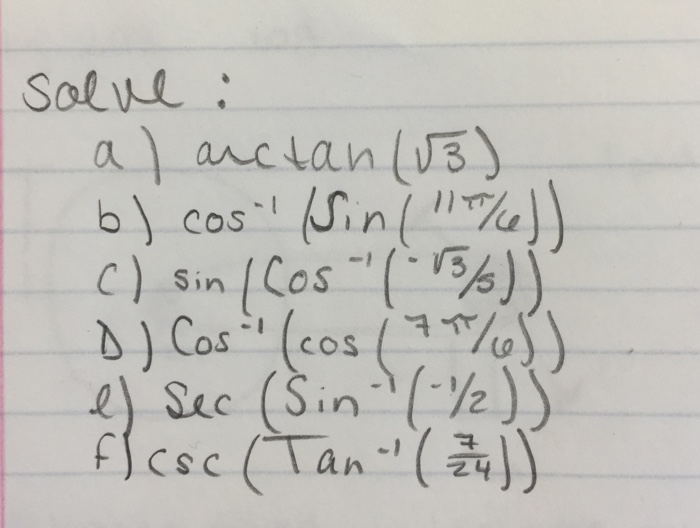 Solve :
a) arctan(√3)
b) cos⁻¹(Sin(11π/6))
C) sin(Cos⁻¹(-√3/5))
D) Cos⁻¹(cos(7π/6))
e) Sec(Sin⁻¹(-1/2))
f) csc(Tan⁻¹(7/24))